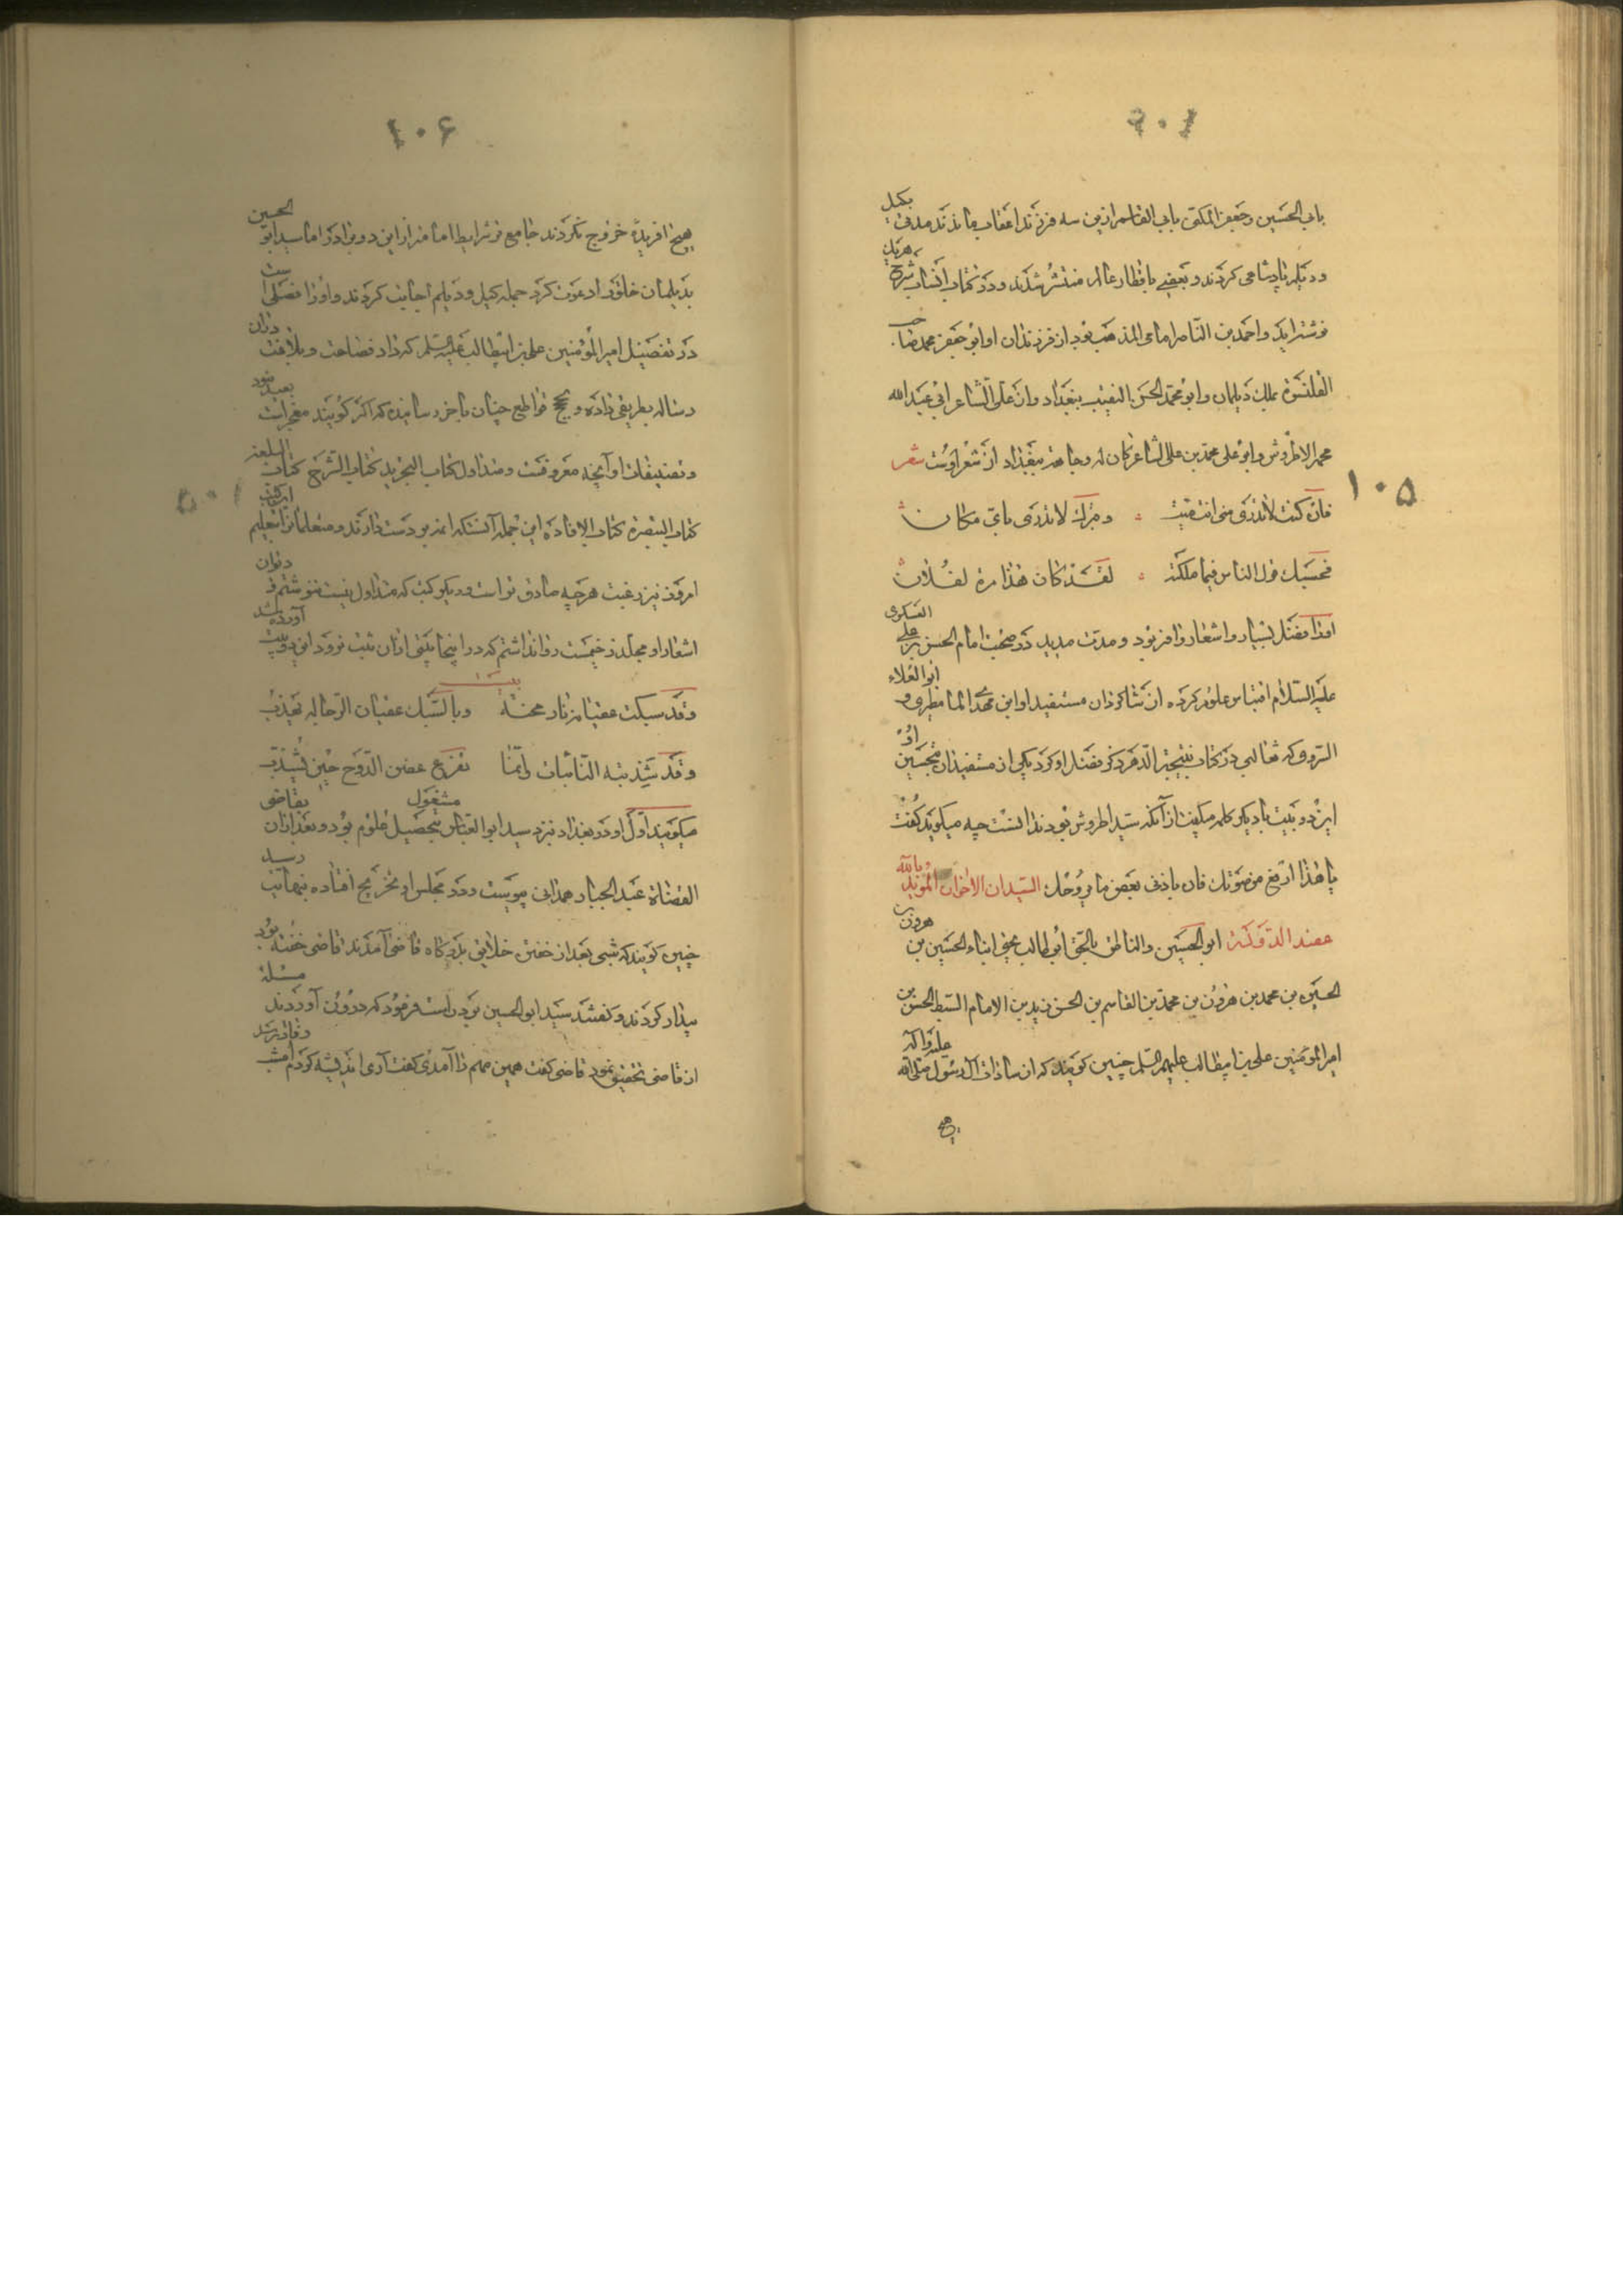 بابی الحسین و جعفر المکنی بابی القاسم ازین سه فرزند اعقاب ماندند مدتی بکیل
و دیلم پادشاهی کردند و بعضی باقطار عالم منتشر شدند و در کتاب انساب شرح هریک
نوشته‌اند و احمد بن الناصر امامی المذهب بود از فرزندان او ابو جعفر محمد صاحب
القلنسوة ملک دیلمان و ابو محمد الحسن النقیب ببغداد وابن علی الشاعر ابی عبدالله
محمد الاطروش و ابو علی محمد بن علی الشاعر کان له وجاهة ببغداد از شعر اوست شعر
فان کنت لا تدری متی انت میت و قبرک لا تدری بای مکان
فحسبک قول الناس فیما ملکته لقد کان هذا مرة لفلان
او را فضل بسیار و اشعار وافر بود و مدت مدید در صحبت امام الحسن بن علی العسکری
علیه السلام اقتباس علوم کرده از شاگردان مستفید او ابن مهدی المامطیری و ابوالعلاء
السروی که ثعالبی در کتاب یتیمة الدهر ذکر فضل او کرد یکی از مستفیدان او
این دو بیت بادیگر کلمه میگفت از آنکه سید اطروش بود ندانست چه میگوید گفت
یا هذا ارفع من صوتک فان باذنی بعض ما بروحک السیدان الاخوان المؤید بالله
عضد الدولة ابو الحسین والناطق بالحق ابوطالب یحیی ابناء الحسین بن هرون
الحسین بن محمد بن هرون بن محمد بن القاسم بن الحسن بن زید بن الامام السبط الحسن بن
امیر المؤمنین علی بن ابیطالب علیهم السلام چنین گویند که از سادات آل رسول صلی الله علیه و آله
هیچ
۱۰۵
۱۰۶
هیچ آفریده خروج نکردند جامع تر شرایط امامت را ازین دو برادر اما سید ابو الحسین
بدیلمان خلق را دعوت کرد جمله گیل و دیلم اجابت کردند و او را فصلی است
در تفضیل امیر المؤمنین علی بن ابیطالب علیه السلم که داد فصاحت و بلاغت در آن
رساله بطریقی داده و حجج قواطع چنان بآخر رسانیده که اگر گویند معجز است بعید نبود
و تصنیفات او آنچه معروفست و متداول کتاب التجرید کتاب الشرح کتاب البلغة
کتاب التبصرة کتاب الافادة این جمله آنستکه ائمه بر دست دارند و متعلمان را تعلیم
امروز نیز رغبت هرچه صادق تر است و دیگر کتب که متداول نیست ننوشتم و دیوان
اشعار او مجلد ضخیمست روا نداشتم که در اینجا بیتی از آن ثبت نرود این دو بیت آورده شد
بیت
و قد سبکت عقیانه نار محنة و بالسبک عقیان الرجال یهذب
و قد شذبته النائبات و انما تفرع غصن الدوح حین یشذب
میگویند اول او در بغداد نزد سید ابو العباس بتحصیل علوم مشغول بود و بعد از آن بقاضی
القضاة عبد الجبار همدانی پیوست و در مجلس او تخرج افتاده بنهایت رسید
چنین گویند که شبی بعد از خفتن خلایق بدرگاه قاضی آمدند قاضی خفته بود
بیدار کردند و گفتند سید ابو الحسین بر درست فرمود که درون آوردند مسئله
از قاضی تحقیق نمود قاضی گفت همین مهم را آمدی گفت آری اندیشه کردم امشب وفات رسد